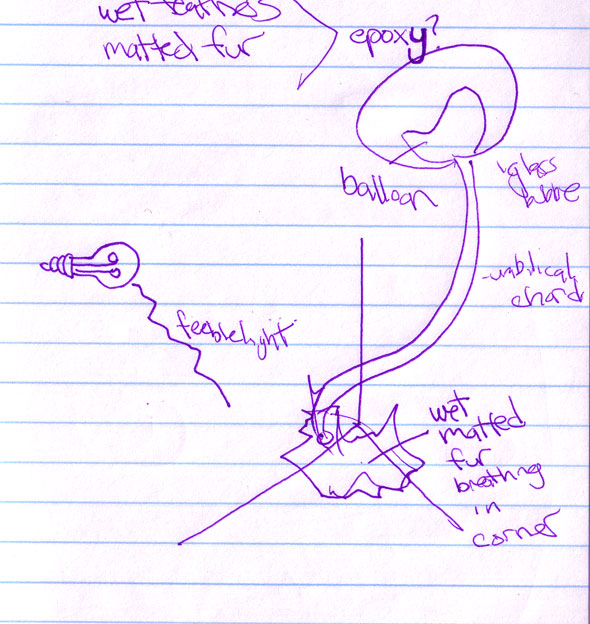 wet
matted fur
epoxy?
balloon
glass
umbilical
chord
feeble light
wet
matted
fur
breathing
in
corner